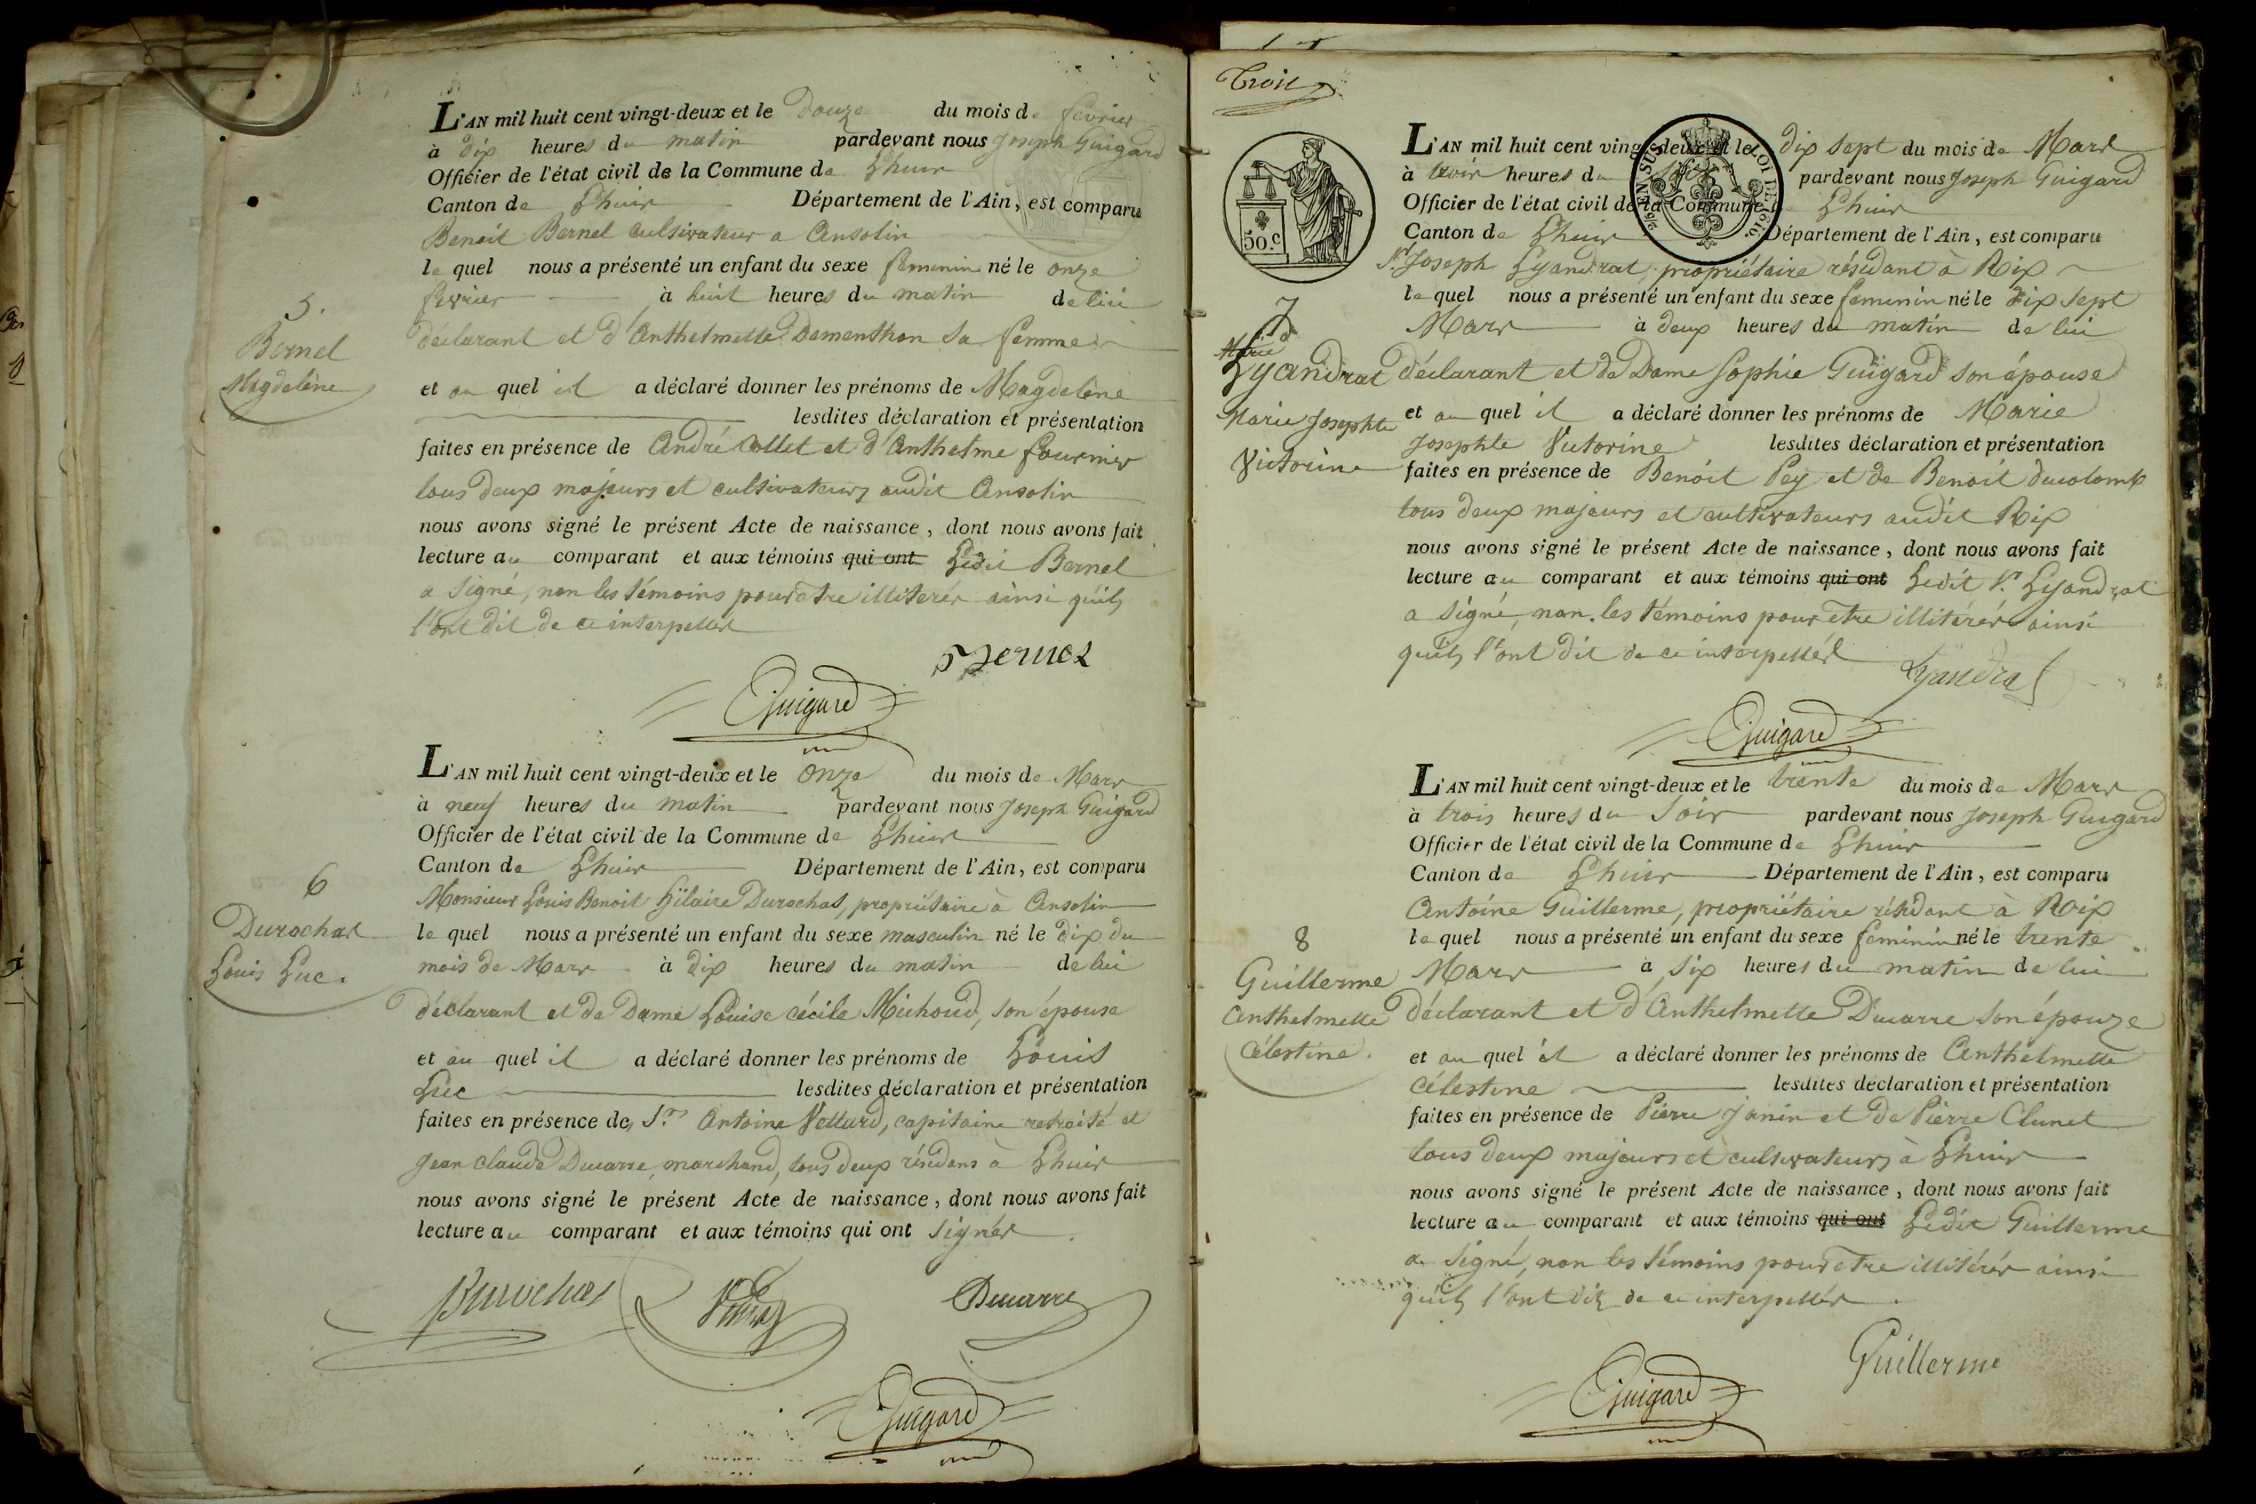 L'AN mil huit cent vingt-deux et le Douze du mois de fevrier
à dix heures du matin pardevant nous Joseph Guigard
Officier de l'état civil de la Commune de Lhuir
Canton de Lhuir Département de l'Ain, est comparu
Benoit Bernel cultivateur a Ansolin
le quel nous a présenté un enfant du sexe femenin né le onze
fevrier à huit heures du matin de lui
déclarant et d'Anthelmette Dementhon sa femme
et au quel il a déclaré donner les prénoms de Magdelène
lesdites déclaration et présentation
faites en présence de André Collet et d'Anthelme fournier
tous deux majeurs et cultivateurs audit Ansolin
nous avons signé le présent Acte de naissance, dont nous avons fait
lecture au comparant et aux témoins qui ont Ledit Bernel
a signé, non les témoins pour etre illiterér ainsi qu'ils
l'ont dit de ce interpellér
5.
Bernel
Magdelène
Bernel
Guigard
L'AN mil huit cent vingt-deux et le onze du mois de Mars
à neuf heures du matin pardevant nous Joseph Guigard
Officier de l'état civil de la Commune de Lhuir
Canton de Lhuir Département de l'Ain, est comparu
Monsieur Louis Benoit Hÿlaire Durochat, propriétaire à Ansolin
le quel nous a présenté un enfant du sexe masculin né le dix du
mois de Mars à dix heures du matin de lui
déclarant et de Dame Louise cécile Michoud, son épouse
et au quel il a déclaré donner les prénoms de Louis
Luc lesdites déclaration et présentation
faites en présence de, Srs Antoine Vettard, capitaine retraité et
Jean claude Ducarre, marchand, tous deux résidans à Lhuir
nous avons signé le présent Acte de naissance, dont nous avons fait
lecture au comparant et aux témoins qui ont signér
6
Durochat
Louis Luc.
Durochat
Ducarre
Guigard
Troir
50.c
EN SUS LOI DE 1816.
L'AN mil huit cent vingt-deux et le dix sept du mois de Mars
à troir heures du soir pardevant nous Joseph Guigard
Officier de l'état civil de la Commune de Lhuir
Canton de Lhuir Département de l'Ain, est comparu
Sr Joseph Lyandrat, propriétaire résidant à Rix
le quel nous a présenté un enfant du sexe femenin né le dix sept
Mars à deux heures du matin de lui
déclarant et de Dame Sophie Guigard son épouse
et au quel il a déclaré donner les prénoms de Marie
Josephte Victorine lesdites déclaration et présentation
faites en présence de Benoit Pey et de Benoit ducolomb
tous deux majeurs et cultivateurs audit Rix
nous avons signé le présent Acte de naissance, dont nous avons fait
lecture au comparant et aux témoins qui ont Ledit Sr Lyandrat
a signé, non les témoins pour etre illitérér ainsi
qu'ils l'ont dit de ce interpellér
7
Marie
Lyandrat
Marie Josephte
Victorine
Lyandrat
Guigard
L'AN mil huit cent vingt-deux et le trente du mois de Mars
à trois heures du soir pardevant nous Joseph Guigard
Officier de l'état civil de la Commune de Lhuir
Canton de Lhuir Département de l'Ain, est comparu
Antoine Guillerme, propriétaire résidant à Rix
le quel nous a présenté un enfant du sexe feminin né le trente
Mars à six heures du matin de lui
déclarant et d'Anthelmette Ducarre son épouze
et au quel il a déclaré donner les prénoms de Anthelmette
célestine lesdites déclaration et présentation
faites en présence de Pierre Janin et de Pierre Clunet
tous deux majeurs et cultivateurs à Lhuir
nous avons signé le présent Acte de naissance, dont nous avons fait
lecture au comparant et aux témoins qui ont Ledit Guillerme
a signé, non les témoins pour etre illitérér ainsi
qu'ils l'ont dit de ce interpellér.
8
Guillerme
Anthelmette
Célestine.
Guillerme
Guigard